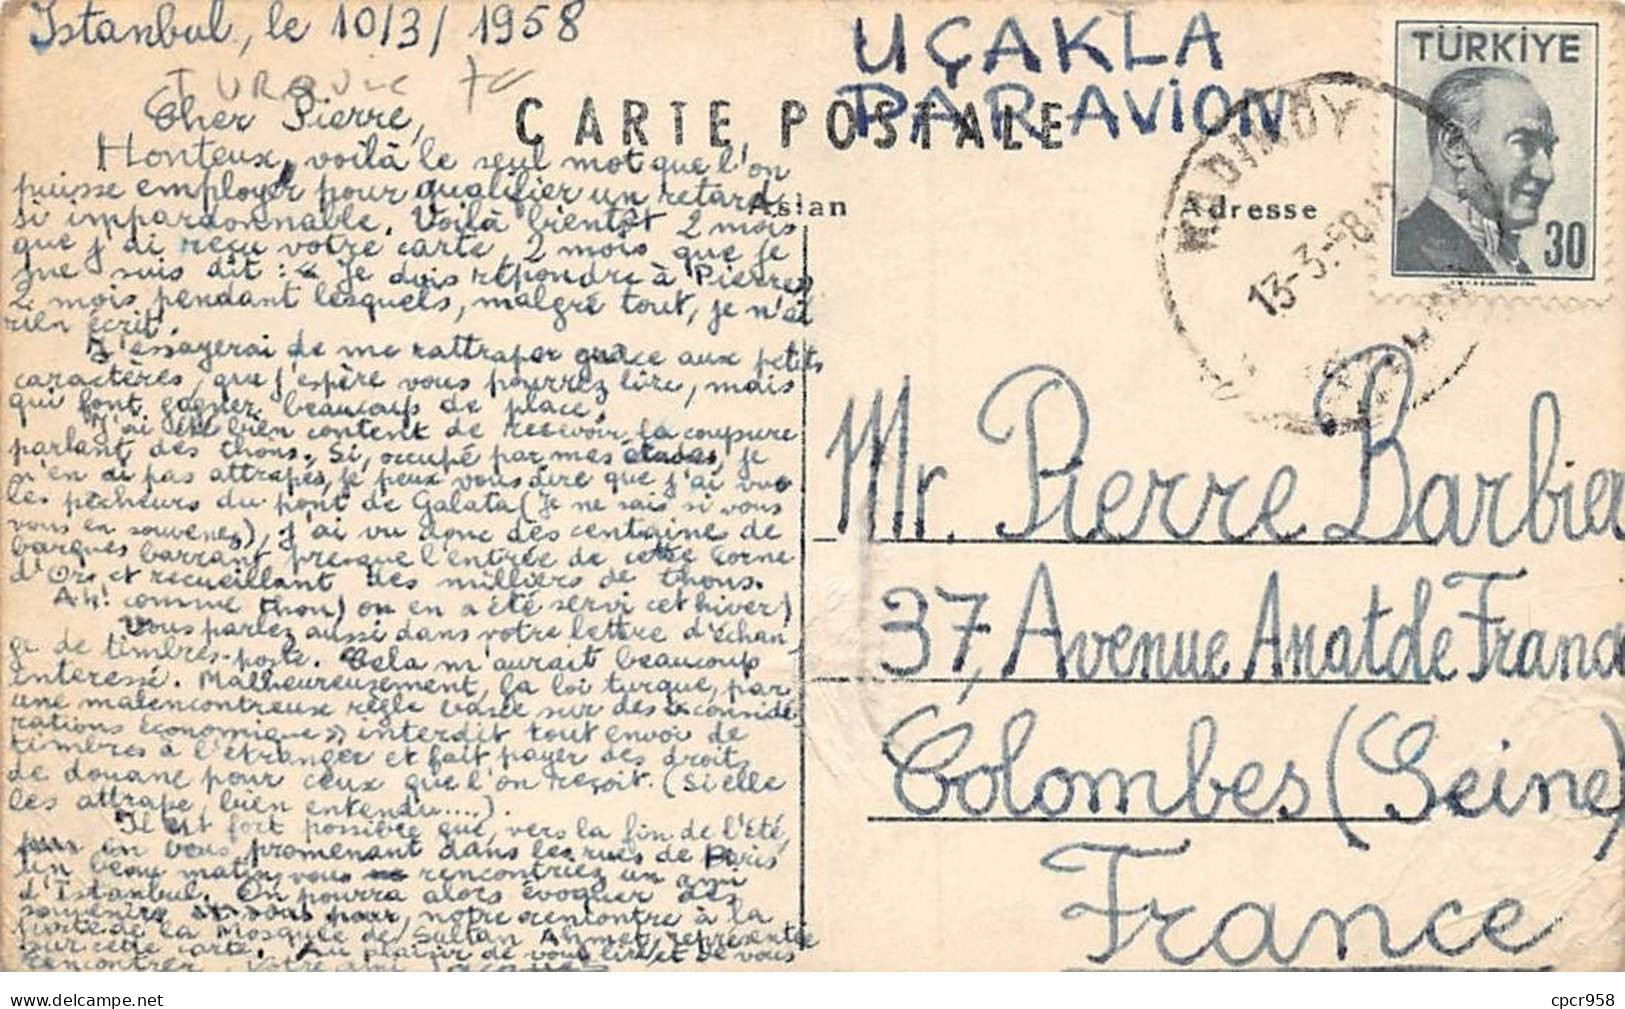 Istanbul, le 10/3/1958
UÇAKLA
PAR AVION
TÜRKİYE
30
TURQUIE
CARTE POSTALE
Aslan
Adresse
KADIKÖY
13-3-58
Cher Pierre,
Honteux, voilà le seul mot que l'on
puisse employer pour qualifier un retard
si impardonnable. Voilà bientôt 2 mois
que j'ai reçu votre carte, 2 mois que je
me suis dit : « Je dois répondre à Pierre »
2 mois pendant lesquels, malgré tout, je n'ai
rien écrit.
J'essayerai de me rattraper grâce aux petits
caractères, que j'espère vous pourrez lire, mais
qui font gagner beaucoup de place.
J'ai été bien content de recevoir la coupure
parlant des thons. Si, occupé par mes études, je
n'en ai pas attrapés, je peux vous dire que j'ai vu
les pêcheurs du pont de Galata (Je ne sais si vous
vous en souvenez), j'ai vu donc des centaines de
barques barrant presque l'entrée de cette Corne
d'Or, et recueillant des milliers de thons.
Ah! comme thon) on en a été servi cet hiver!
Vous parlez aussi dans votre lettre d'échan-
ge de timbres-poste. Cela m'aurait beaucoup
interessé. Malheureusement, la loi turque, par
une malencontreuse règle basée sur des « considé-
rations économiques » interdit tout envoi de
timbres à l'étranger et fait payer des droits
de douane pour ceux que l'on reçoit. (Si elle
les attrape, bien entendu.....).
Il est fort possible que, vers la fin de l'été,
en vous promenant dans les rues de Paris
un beau matin, vous rencontriez un ami
d'Istanbul. On pourra alors évoquer des
souvenirs pour notre rencontre à la
porte de la Mosquée de Sultan Ahmet, représentée
sur cette carte. Au plaisir de vous lire et de vous
rencontrer, Votre ami
Mr. Pierre Barbier
37, Avenue Anatole France
Colombes (Seine)
France
cpcr958